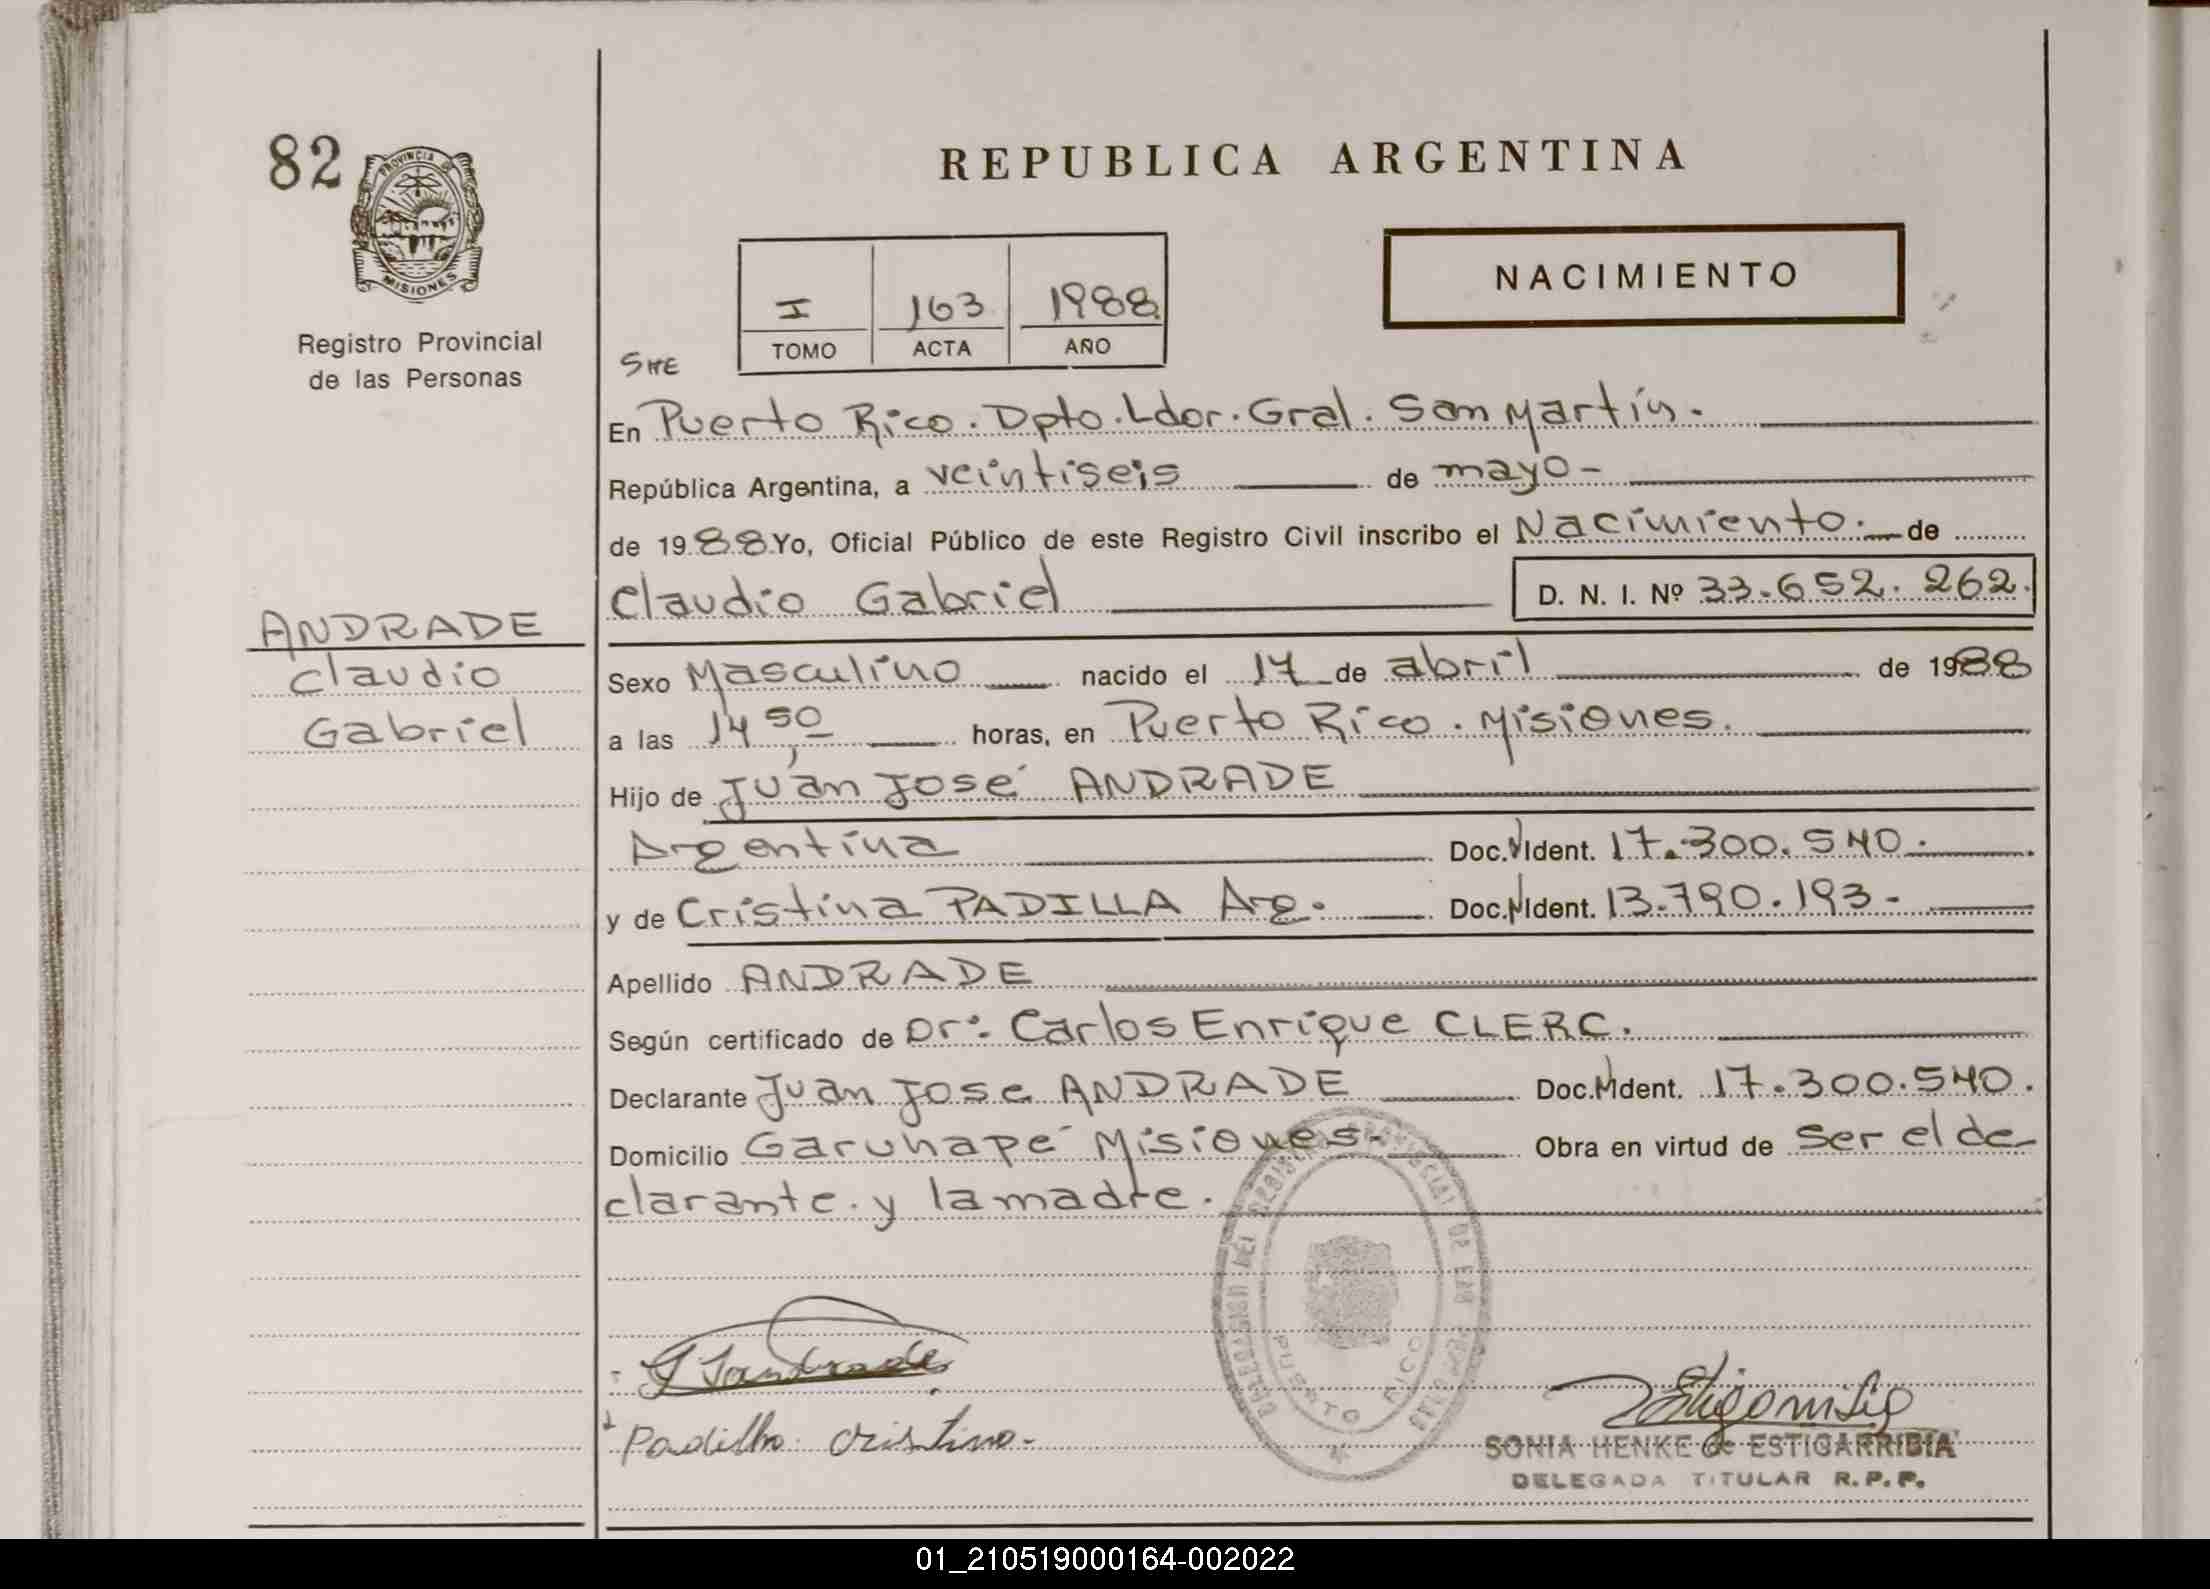 82
PROVINCIA DE
MISIONES
Registro Provincial
de las Personas
REPUBLICA ARGENTINA
NACIMIENTO
I 163 1988
TOMO ACTA AÑO
En Puerto Rico. Dpto. Ldor. Gral. San Martín.
República Argentina, a veintiseis de mayo-
de 1988 Yo, Oficial Público de este Registro Civil inscribo el Nacimiento. de
Claudio Gabriel D. N. I. Nº 33.652.262.
ANDRADE
Claudio
Gabriel
Sexo Masculino nacido el 17 de abril de 1988
a las 14,50 horas, en Puerto Rico. Misiones.
Hijo de Juan José ANDRADE
Argentina Doc. Ident. 17.300.540.
y de Cristina PADILLA Arg. Doc. Ident. 13.790.193-
Apellido ANDRADE
Según certificado de Dr. Carlos Enrique CLERC.
Declarante Juan Jose ANDRADE Doc. Ident. 17.300.540.
Domicilio Garuhapé Misiones- Obra en virtud de ser el de
clarante. y la madre.
DELEGACION DEL REGISTRO PROVINCIAL DE LAS PERSONAS
PUERTO RICO
Padilla Cristina-
SONIA HENKE de ESTIGARRIBIA
DELEGADA TITULAR R.P.P.
01_210519000164-002022